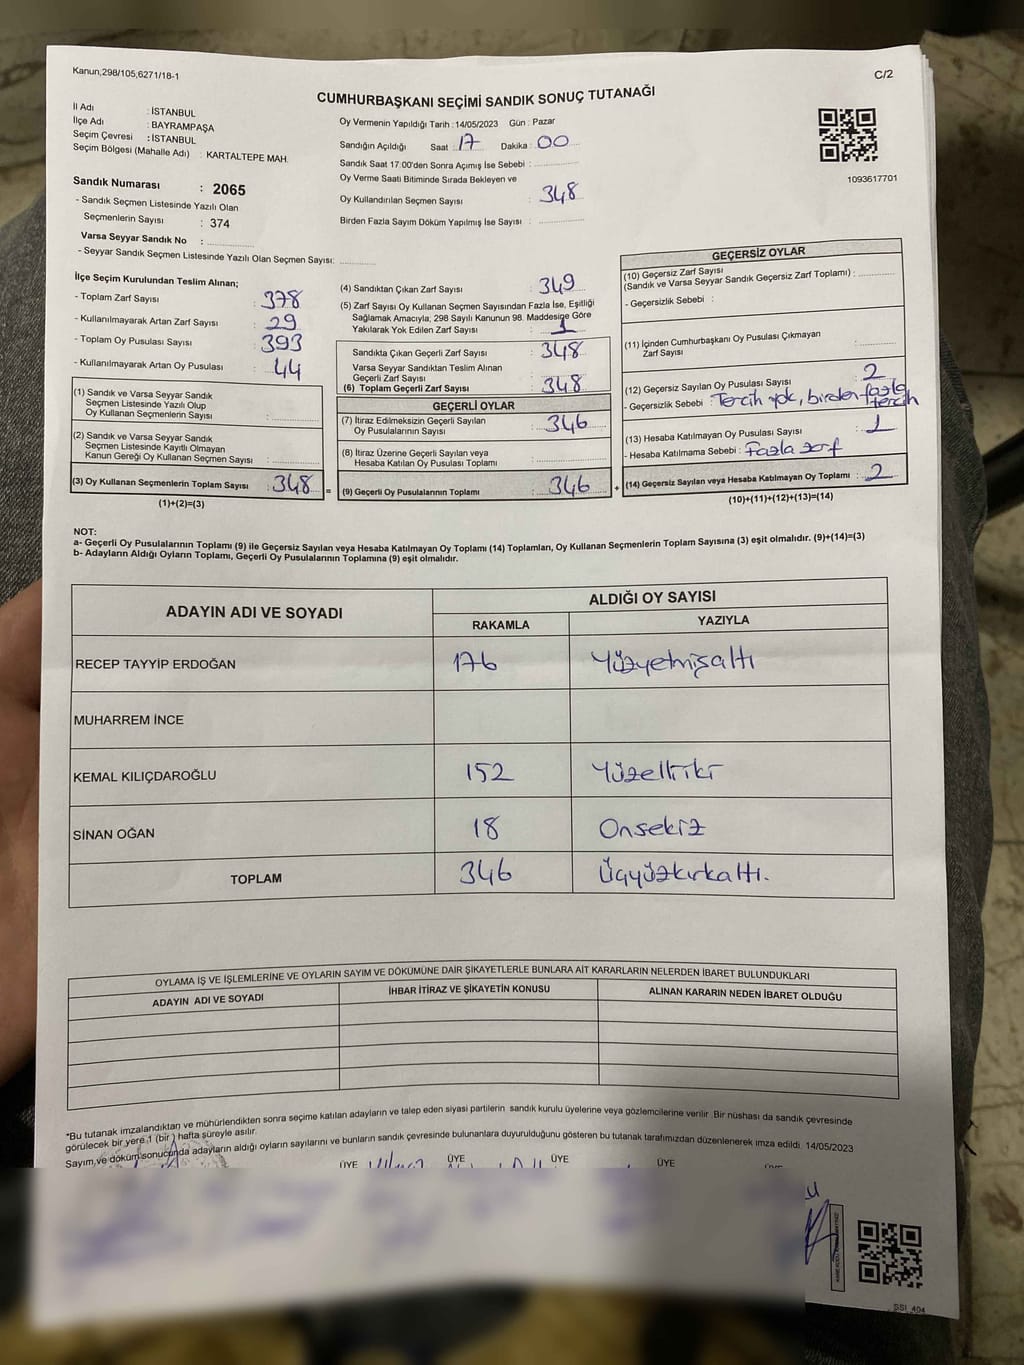 Kanun;298/105,6271/18-1
C/2
CUMHURBAŞKANI SEÇİMİ SANDIK SONUÇ TUTANAĞI
İl Adı : İSTANBUL
İlçe Adı : BAYRAMPAŞA
Seçim Çevresi : İSTANBUL
Seçim Bölgesi (Mahalle Adı) : KARTALTEPE MAH.
Sandık Numarası : 2065
- Sandık Seçmen Listesinde Yazılı Olan
Seçmenlerin Sayısı : 374
Varsa Seyyar Sandık No :
- Seyyar Sandık Seçmen Listesinde Yazılı Olan Seçmen Sayısı:
Oy Vermenin Yapıldığı Tarih : 14/05/2023 Gün : Pazar
Sandığın Açıldığı Saat : 17 Dakika : 00
Sandık Saat 17:00'den Sonra Açımış İse Sebebi :
Oy Verme Saati Bitiminde Sırada Bekleyen ve
Oy Kullandırılan Seçmen Sayısı : 348
Birden Fazla Sayım Döküm Yapılmış İse Sayısı :
1093617701
İlçe Seçim Kurulundan Teslim Alınan;
- Toplam Zarf Sayısı : 378
- Kullanılmayarak Artan Zarf Sayısı : 29
- Toplam Oy Pusulası Sayısı : 393
- Kullanılmayarak Artan Oy Pusulası : 44
(1) Sandık ve Varsa Seyyar Sandık
Seçmen Listesinde Yazılı Olup
Oy Kullanan Seçmenlerin Sayısı :
(2) Sandık ve Varsa Seyyar Sandık
Seçmen Listesinde Kayıtlı Olmayan
Kanun Gereği Oy Kullanan Seçmen Sayısı :
(3) Oy Kullanan Seçmenlerin Toplam Sayısı : 348 =
(1)+(2)=(3)
(4) Sandıktan Çıkan Zarf Sayısı : 349
(5) Zarf Sayısı Oy Kullanan Seçmen Sayısından Fazla İse, Eşitliği
Sağlamak Amacıyla; 298 Sayılı Kanunun 98. Maddesine Göre
Yakılarak Yok Edilen Zarf Sayısı : 1
Sandıkta Çıkan Geçerli Zarf Sayısı : 348
Varsa Seyyar Sandıktan Teslim Alınan
Geçerli Zarf Sayısı :
(6) Toplam Geçerli Zarf Sayısı : 348
GEÇERLİ OYLAR
(7) İtiraz Edilmeksizin Geçerli Sayılan
Oy Pusulalarının Sayısı : 346
(8) İtiraz Üzerine Geçerli Sayılan veya
Hesaba Katılan Oy Pusulası Toplamı :
(9) Geçerli Oy Pusulalarının Toplamı : 346 +
GEÇERSİZ OYLAR
(10) Geçersiz Zarf Sayısı
(Sandık ve Varsa Seyyar Sandık Geçersiz Zarf Toplamı) :
- Geçersizlik Sebebi :
(11) İçinden Cumhurbaşkanı Oy Pusulası Çıkmayan
Zarf Sayısı :
(12) Geçersiz Sayılan Oy Pusulası Sayısı : 2
- Geçersizlik Sebebi : Tercih yok, birden fazla
tercih
(13) Hesaba Katılmayan Oy Pusulası Sayısı : 1
- Hesaba Katılmama Sebebi : Fazla zarf
(14) Geçersiz Sayılan veya Hesaba Katılmayan Oy Toplamı : 2
(10)+(11)+(12)+(13)=(14)
NOT:
a- Geçerli Oy Pusulalarının Toplamı (9) ile Geçersiz Sayılan veya Hesaba Katılmayan Oy Toplamı (14) Toplamları, Oy Kullanan Seçmenlerin Toplam Sayısına (3) eşit olmalıdır. (9)+(14)=(3)
b- Adayların Aldığı Oyların Toplamı, Geçerli Oy Pusulalarının Toplamına (9) eşit olmalıdır.
ADAYIN ADI VE SOYADI
ALDIĞI OY SAYISI
RAKAMLA YAZIYLA
RECEP TAYYİP ERDOĞAN 176 Yüzyetmişaltı
MUHARREM İNCE
KEMAL KILIÇDAROĞLU 152 Yüzelliiki
SİNAN OĞAN 18 Onsekiz
TOPLAM 346 Üçyüzkırkaltı.
OYLAMA İŞ VE İŞLEMLERİNE VE OYLARIN SAYIM VE DÖKÜMÜNE DAİR ŞİKAYETLERLE BUNLARA AİT KARARLARIN NELERDEN İBARET BULUNDUKLARI
ADAYIN ADI VE SOYADI İHBAR İTİRAZ VE ŞİKAYETİN KONUSU ALINAN KARARIN NEDEN İBARET OLDUĞU
*Bu tutanak imzalandıktan ve mühürlendikten sonra seçime katılan adayların ve talep eden siyasi partilerin sandık kurulu üyelerine veya gözlemcilerine verilir. Bir nüshası da sandık çevresinde
görülecek bir yere 1 (bir) hafta süreyle asılır.
Sayım ve döküm sonucunda adayların aldığı oyların sayılarını ve bunların sandık çevresinde bulunanlara duyurulduğunu gösteren bu tutanak tarafımızdan düzenlenerek imza edildi. 14/05/2023
ÜYE ÜYE ÜYE ÜYE
SSI_404